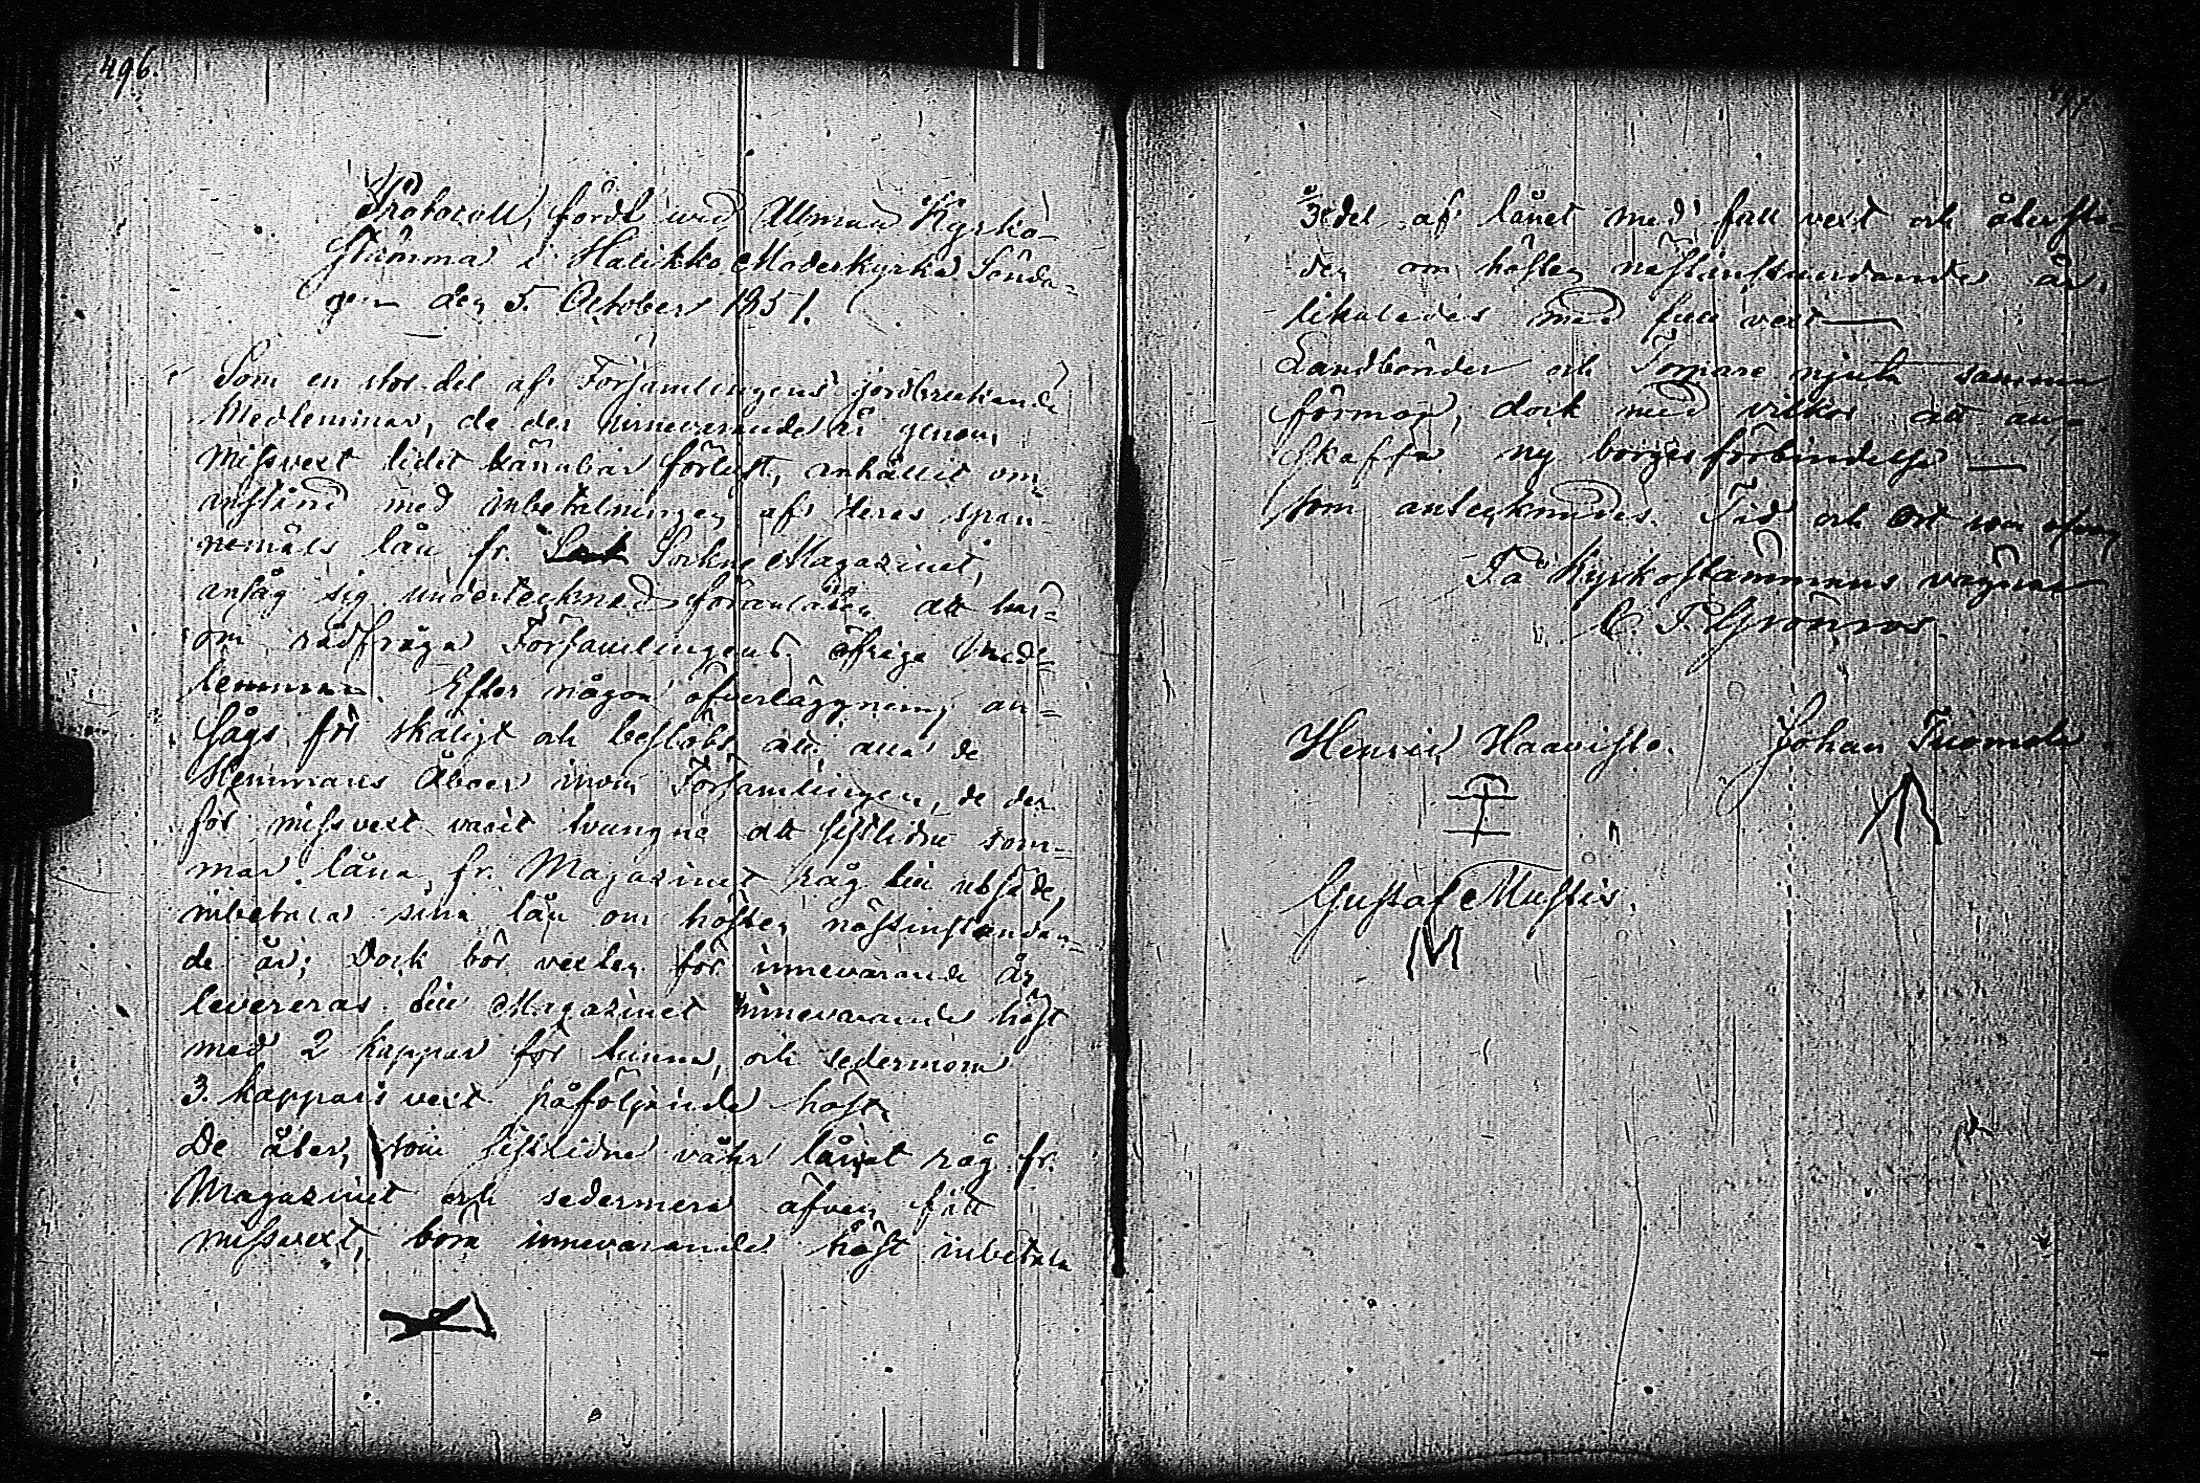 496.
Protocoll, fördt wid Allmän Kyrko-
stämma i Halikko Moderkyrka Sönda-
gen den 5. October 1851.
Som en stor del af Församlingens jordbrukande
Medlemmar, de der innevarande år genom
missvext lidit kännbar förlust, anhållit om
anstånd med inbetalningen af deres span-
nemåls lån fr. Sockne Magazinet,
ansåg sig undertecknad föranlåten att här-
om rådfråga Församlingens öfrige Med-
lemmar. Efter någon öfverläggning an-
sågs för skäligt och beslöts, att alla de
Hemmans Åboer inom Församlingen, de der
för missvext varit tvungne att sistlidne som-
mar låna fr. Magazinet råg till utsäde,
inbetala sina lån om hösten nästinstundan-
de år; Dock bör vexten för innevarande år
levereras till Magazinet innevarande höst
med 2 kappar för tunna, och sedermera
3. kappars vext påföljande höst.
De åter, som sistlidne våhr lånat råg fr.
Magazinet och sedermera äfven fått
missvext, böra innevarande höst inbetala
3:del af lånet med full vext och återsto-
den om hösten nästinstundande år,
likaledes med full vext —
Landbönder och Torpare njuta samma
förmon, dock med vilkor att an-
skaffa ny borgesförbindelse —
som antecknades. Tid och Ort som ofvan
På Kyrkostämmans vägnar
C. P. Grönroos.
Henric Haavisto. Johan Tuomola
Gustaf Mustis.
M